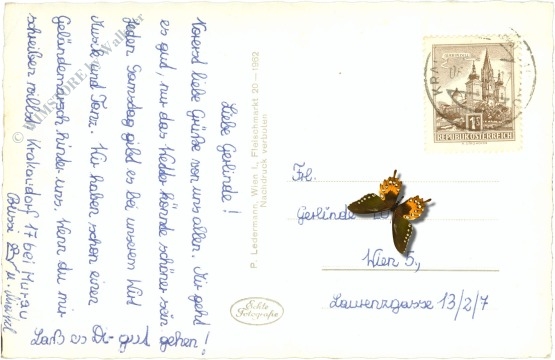 Liebe Gerlinde!
Vorerst liebe Grüße von uns allen. Mir geht
es gut, nur das Wetter könnte schöner sein
Jeden Samstag gibt es bei unserem Wirt
Musik und Tanz. Wir haben schon einen
Geländemarsch hinter uns. Wenn du mir
schreiben willst: Krakaudorf 17 bei Murau
Laß es Dir gut gehen!
P. Ledermann, Wien 1., Fleischmarkt 20 — 1962
Nachdruck verboten
Echte
Fotografie
1S
REPUBLIK ÖSTERREICH
Frl.
Gerlinde
Wien 5.,
Laurenzgasse 13/2/7